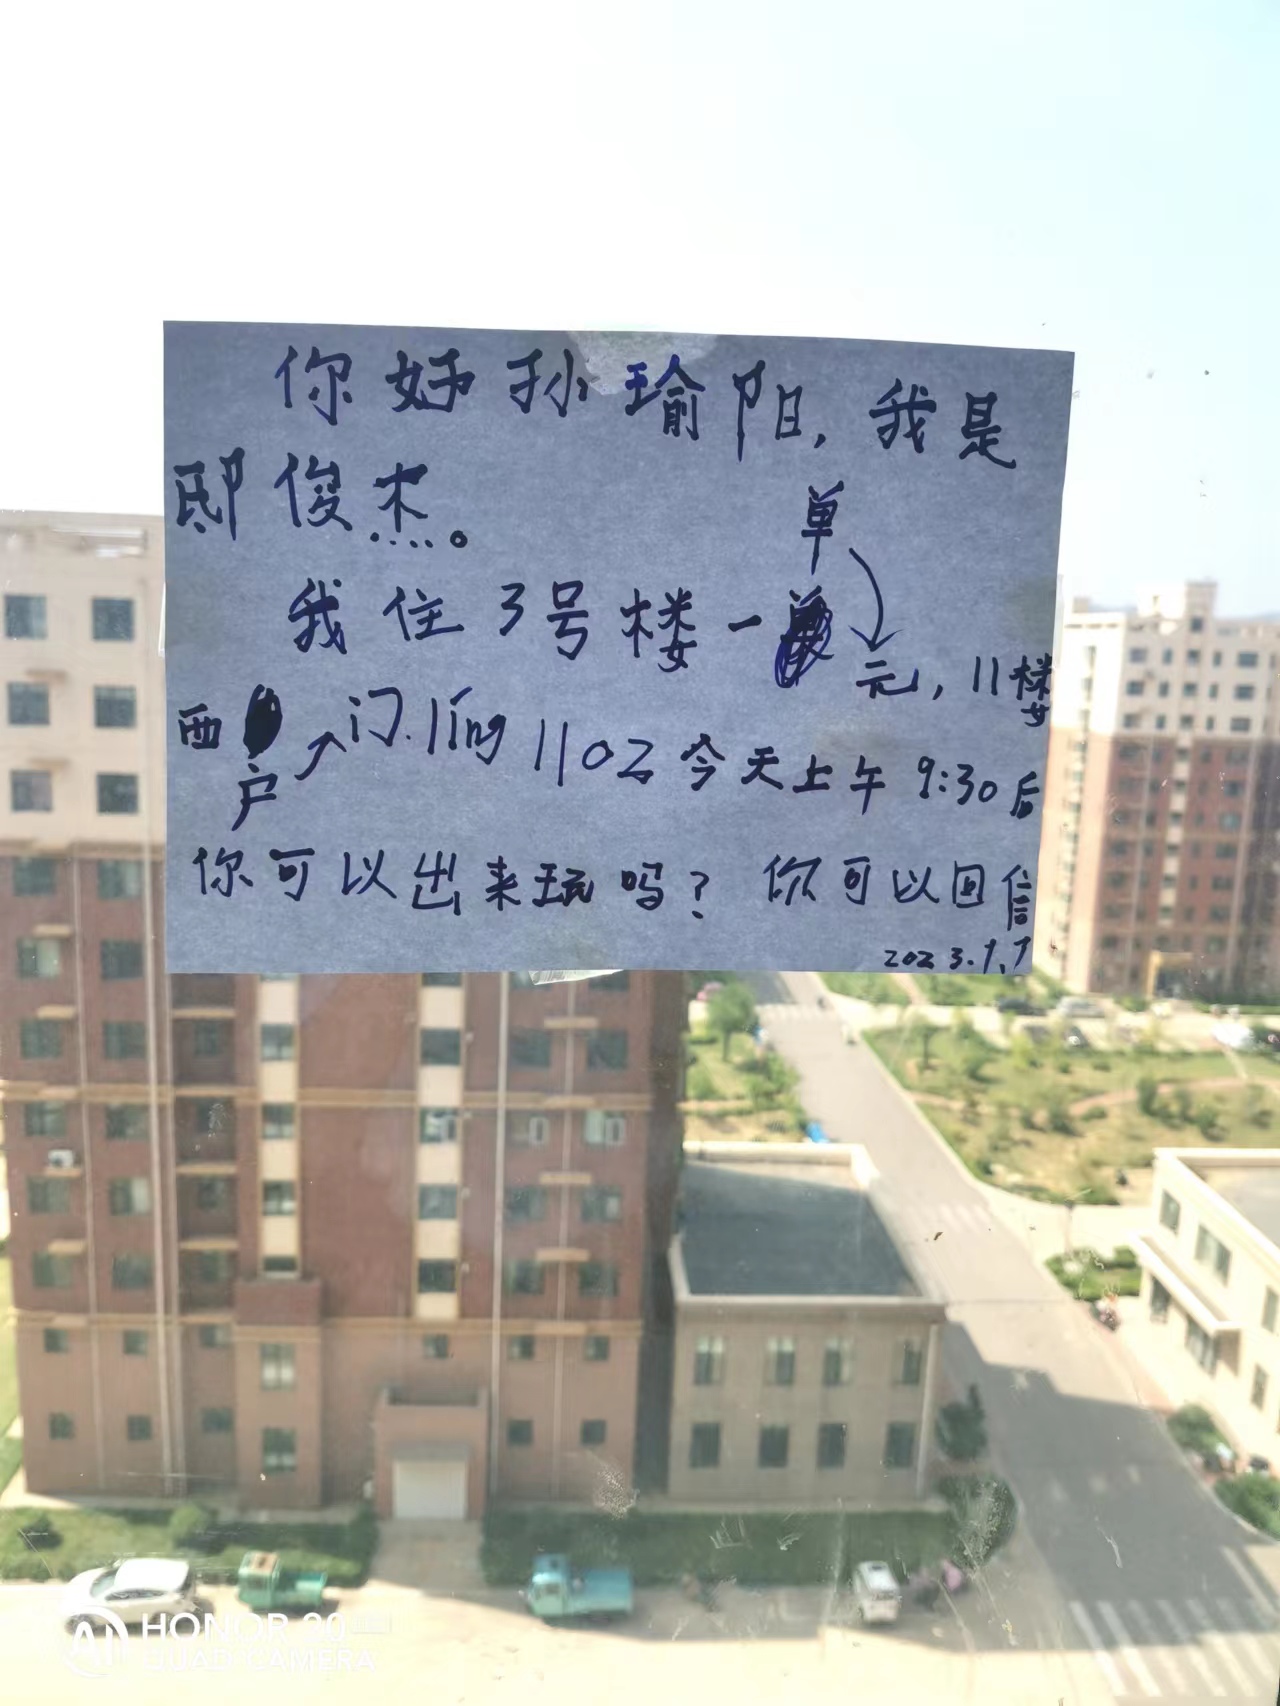 你好孙瑜阳，我是
邸俊杰。
我住3号楼一单元，11楼
西户门.líng 1102 今天上午 9:30后
你可以出来玩吗？你可以回信
2023.9.7
HONOR 20
AI QUAD CAMERA